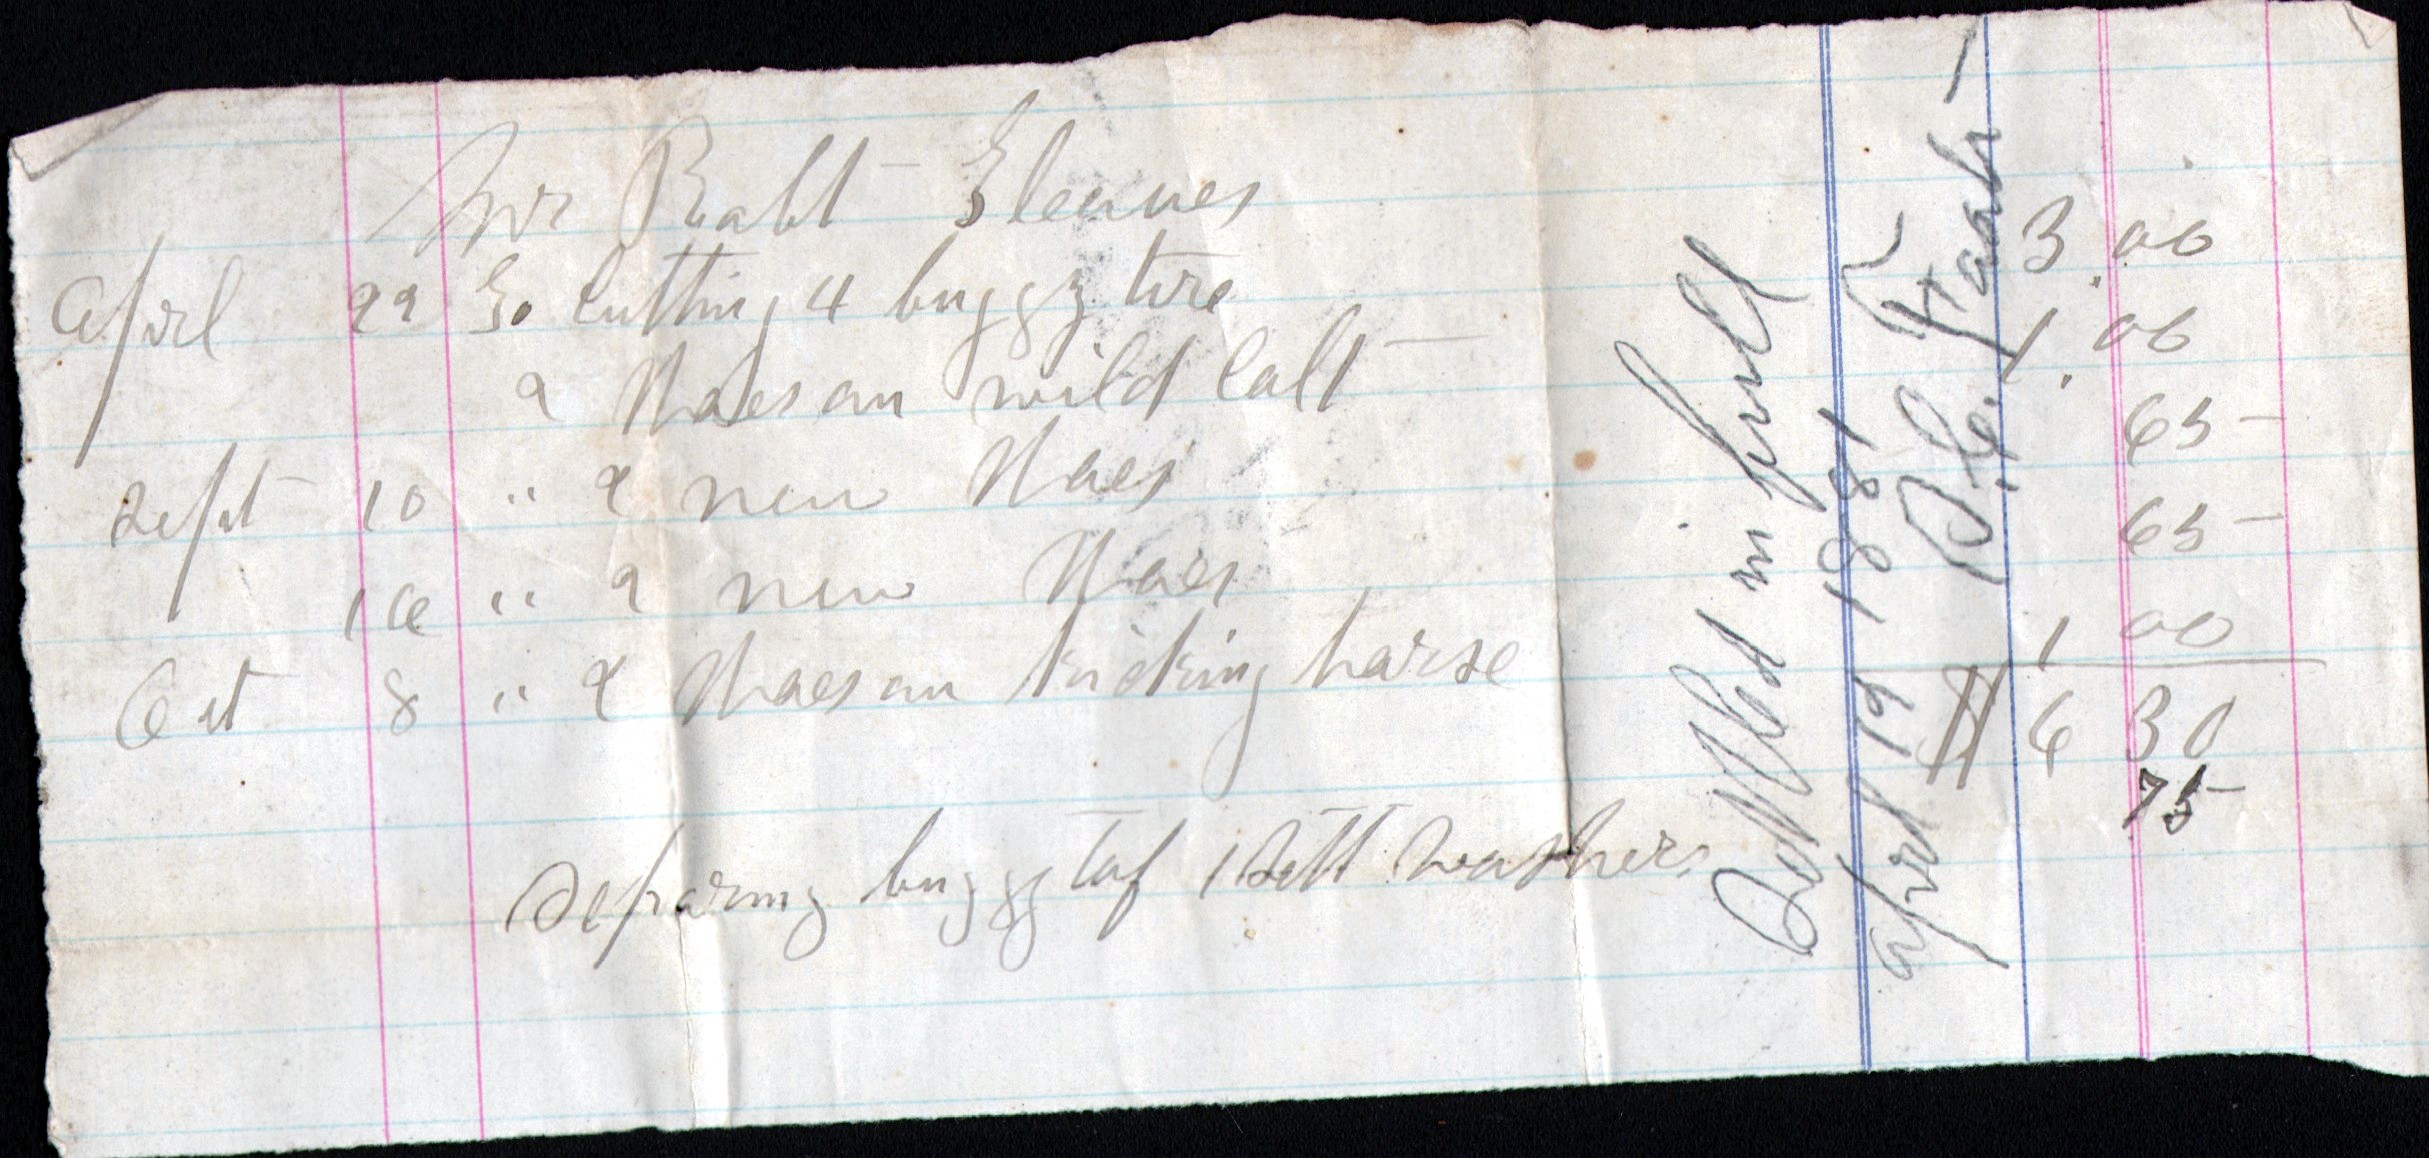 Mr Robt Gleaves
April 22 To Cutting 4 buggy tire 3.00
2 Shoes on wild Colt 1.00
Sept 10 " 2 new Shoes 65
16 " 2 new Shoes 65
Oct 8 " 2 Shoes on kicking horse 1 00
$ 6 30
Reparing buggy top 1 Sett washers 75
Settled in full
April 19 1881